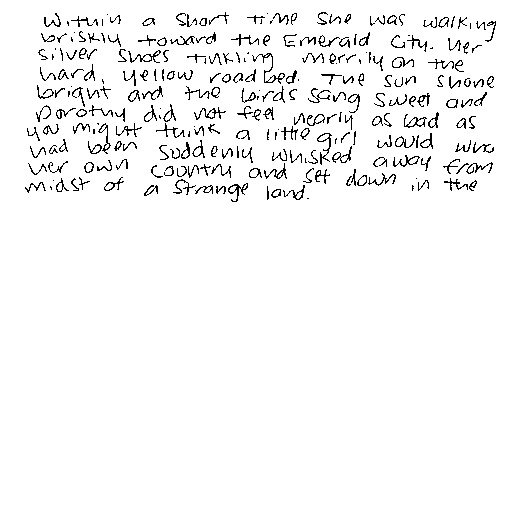 Within a short time she was walking
briskly toward the Emerald City. Her
silver shoes tinkling merrily on the
hard, yellow roadbed. The sun shone
bright and the birds sang sweet and
Dorothy did not feel nearly as bad as
you might think a little girl would who
had been suddenly whisked away from
her own country and set down in the
midst of a strange land.